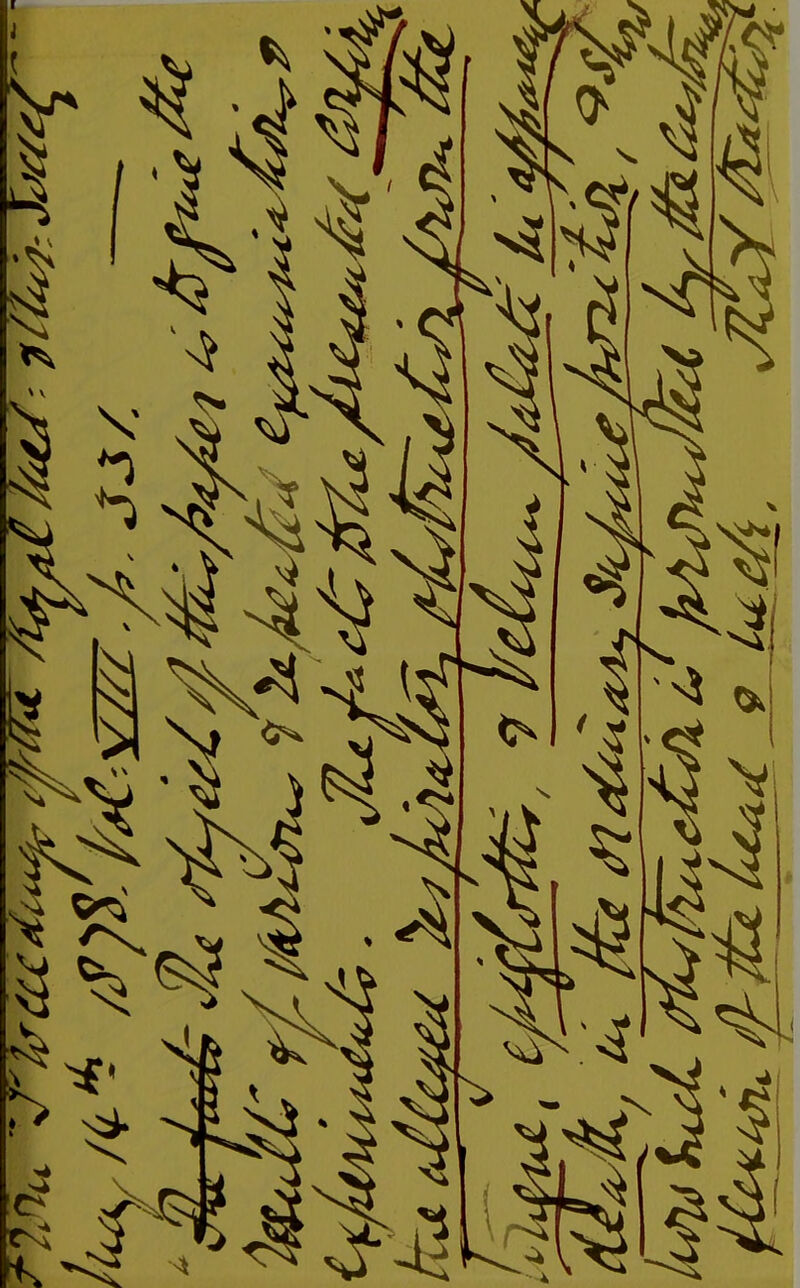 From "Proceedings of the Royal Med: & Chir: Society
May 14th 1878. Vol: VIII. p. 331.
"The facts The object of this paper is to give the
results of various & repeated examinations &
experiments. The facts to be presented confirm
the alleged respiratory obstruction from the
tongue, epiglottis, & velum palati in apparent
death, in the ordinary supine position, & show
how such obstruction is promoted by the customary
flexion of the head & neck. That traction